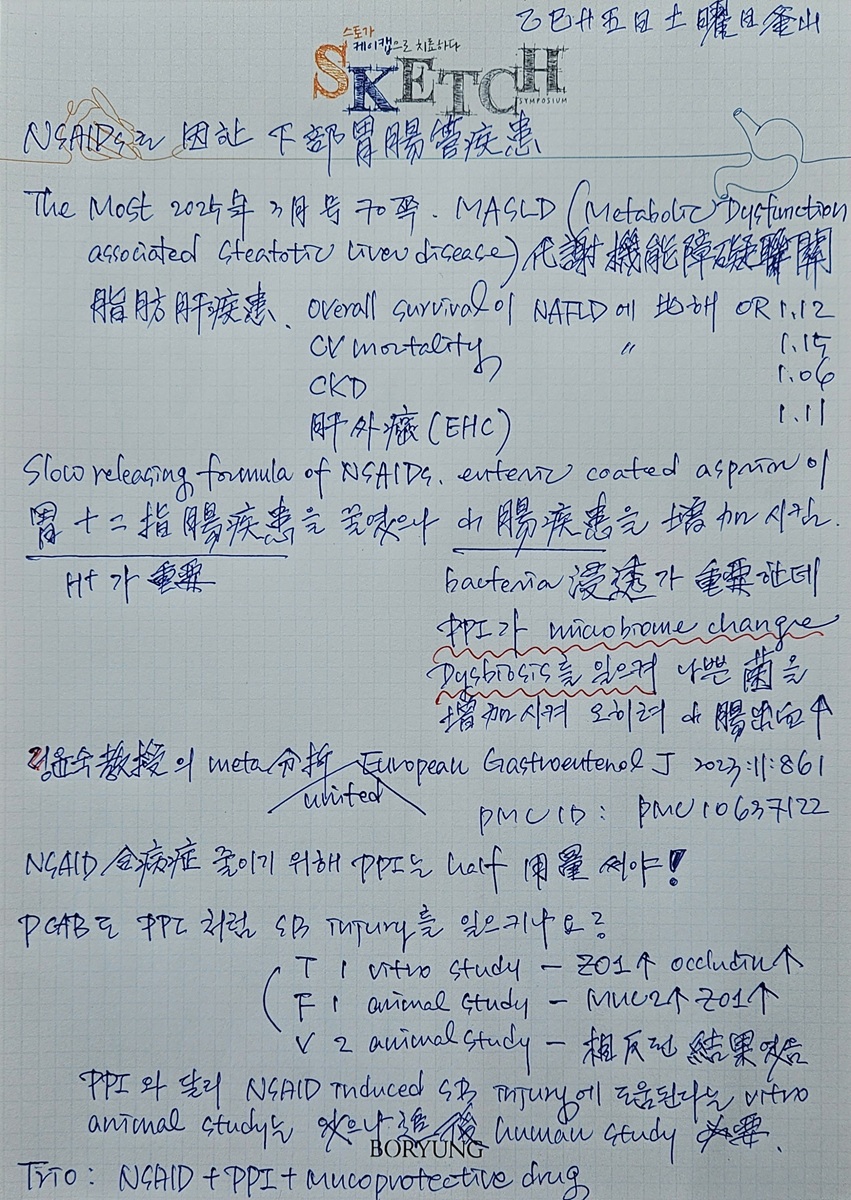 乙巳 五日 土曜日 釜山
스토가
케이캡으로 치료하다
SKETCH
SYMPOSIUM
NSAIDs로 因한 下部胃腸管疾患
The Most 2025年 3月号 70쪽. MASLD (Metabolic Dysfunction
associated steatotic liver disease) 代謝機能障碍聯關
脂肪肝疾患. Overall survival이 NAFLD에 比해 OR 1.12
CV mortality 〃 1.15
CKD 1.06
肝外癌 (EHC) 1.11
Slow releasing formula of NSAIDs. enteric coated asprin이
胃十二指腸疾患을 줄였으나 小腸疾患을 增加시킴.
H+가 重要
bacteria 浸透가 重要한데
PPI가 microbiome change
Dysbiosis를 일으켜 나쁜 菌을
增加시켜 오히려 小腸出血↑
教授의 meta分析 European Gastroenterol J 2023:11:861
united
PMC ID: PMC10637122
NSAID 合病症 줄이기 위해 PPI는 half 用量 써야!
PCAB도 PPI처럼 SB injury를 일으키나요?
T 1 vitro study - ZO1↑ occludin↑
F 1 animal study - MUC2↑ ZO1↑
V 2 animal study - 相反된 結果였음
PPI와 달리 NSAID induced SB injury에 도움된다는 vitro
animal study는 있으나 追後 human study 必要.
BORYUNG
Trio: NSAID + PPI + mucoprotective drug